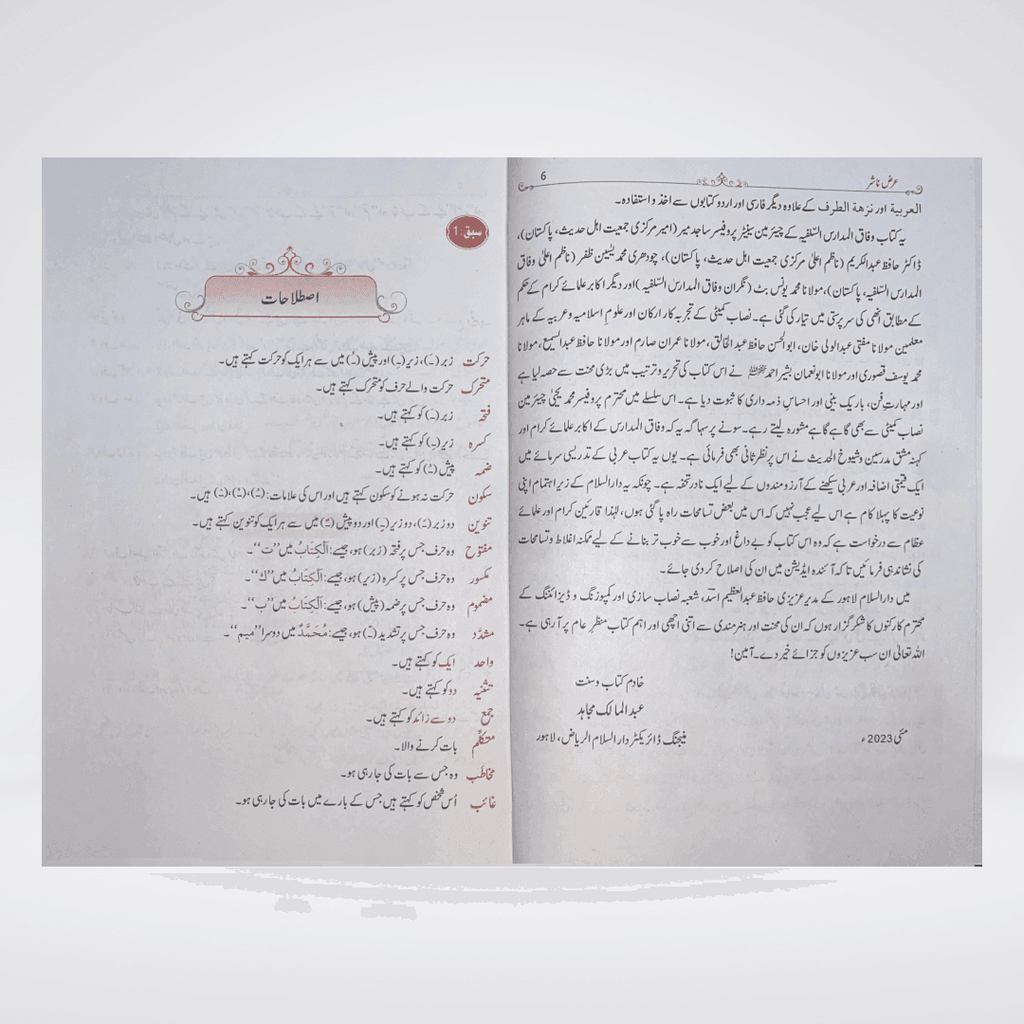 عرض ناشر
6
العربية اور نزهة الطرف کے علاوہ دیگر فارسی اور اردو کتابوں سے اخذ و استفادہ۔
یہ کتاب وفاق المدارس السّلفیہ کے چیئرمین سینیٹر پروفیسر ساجد میر (امیر مرکزی جمعیت اہل حدیث، پاکستان)،
ڈاکٹر حافظ عبدالکریم (ناظم اعلیٰ مرکزی جمعیت اہل حدیث، پاکستان)، چودھری محمد یٰسین ظفر (ناظم اعلیٰ وفاق
المدارس السّلفیہ، پاکستان)، مولانا محمد یونس بٹ (نگران وفاق المدارس السّلفیہ) اور دیگر اکابر علمائے کرام کے حکم
کے مطابق انھی کی سرپرستی میں تیار کی گئی ہے۔ نصاب کمیٹی کے تجربہ کار ارکان اور علومِ اسلامیہ و عربیہ کے ماہر
معلمین مولانا مفتی عبدالولی خان، ابوالحسن حافظ عبدالخالق، مولانا عمران صارم اور مولانا حافظ عبدالسمیع، مولانا
محمد یوسف قصوری اور مولانا ابونعمان بشیر احمد نے اس کتاب کی تحریر و ترتیب میں بڑی محنت سے حصہ لیا ہے
اور مہارتِ فن، باریک بینی اور احساسِ ذمہ داری کا ثبوت دیا ہے۔ اس سلسلے میں محترم پروفیسر محمد یحییٰ چیئرمین
نصاب کمیٹی سے بھی گاہے گاہے مشورہ لیتے رہے۔ سونے پر سہاگہ یہ کہ وفاق المدارس کے اکابر علمائے کرام اور
کہنہ مشق مدرسین و شیوخ الحدیث نے اس پر نظر ثانی بھی فرمائی ہے۔ یوں یہ کتاب عربی کے تدریسی سرمائے میں
ایک قیمتی اضافہ اور عربی سیکھنے کے آرزو مندوں کے لیے ایک نادر تحفہ ہے۔ چونکہ یہ دارالسلام کے زیرِ اہتمام اپنی
نوعیت کا پہلا کام ہے اس لیے عجب نہیں کہ اس میں بعض تسامحات راہ پا گئی ہوں، لہٰذا قارئین کرام اور علمائے
عظام سے درخواست ہے کہ وہ اس کتاب کو بے داغ اور خوب سے خوب تر بنانے کے لیے ممکنہ اغلاط و تسامحات
کی نشاندہی فرمائیں تاکہ آئندہ ایڈیشن میں ان کی اصلاح کر دی جائے۔
میں دارالسلام لاہور کے مدیر عزیزی حافظ عبدالعظیم اسد، شعبہ نصاب سازی اور کمپوزنگ و ڈیزائننگ کے
محترم کارکنوں کا شکر گزار ہوں کہ ان کی محنت اور ہنرمندی سے اتنی اچھی اور اہم کتاب منظرِ عام پر آ رہی ہے۔
اللہ تعالیٰ ان سب عزیزوں کو جزائے خیر دے۔ آمین!
خادم کتاب و سنت
عبدالمالک مجاہد
مئی 2023ء
منیجنگ ڈائریکٹر دارالسلام الریاض، لاہور
سبق:1
اصطلاحات
حرکت زبر (ـَ)، زیر (ـِ) اور پیش (ـُ) میں سے ہر ایک کو حرکت کہتے ہیں۔
متحرک حرکت والے حرف کو متحرک کہتے ہیں۔
فتحہ زبر (ـَ) کو کہتے ہیں۔
کسرہ زیر (ـِ) کو کہتے ہیں۔
ضمہ پیش (ـُ) کو کہتے ہیں۔
سکون حرکت نہ ہونے کو سکون کہتے ہیں اور اس کی علامات: ہیں۔
تنوین دو زبر (ـً)، دو زیر (ـٍ) اور دو پیش (ـٌ) میں سے ہر ایک کو تنوین کہتے ہیں۔
مفتوح وہ حرف جس پر فتحہ (زبر) ہو، جیسے: اَلْکِتَابُ میں ”ت“۔
مکسور وہ حرف جس پر کسرہ (زیر) ہو، جیسے: اَلْکِتَابُ میں ”ك“۔
مضموم وہ حرف جس پر ضمہ (پیش) ہو، جیسے: اَلْکِتَابُ میں ”ب“۔
مشدّد وہ حرف جس پر تشدید (ـّ) ہو، جیسے: مُحَمَّدٌ میں دوسرا ”میم“۔
واحد ایک کو کہتے ہیں۔
تثنیہ دو کو کہتے ہیں۔
جمع دو سے زائد کو کہتے ہیں۔
متکلّم بات کرنے والا۔
مخاطَب وہ جس سے بات کی جا رہی ہو۔
غائب اُس شخص کو کہتے ہیں جس کے بارے میں بات کی جا رہی ہو۔